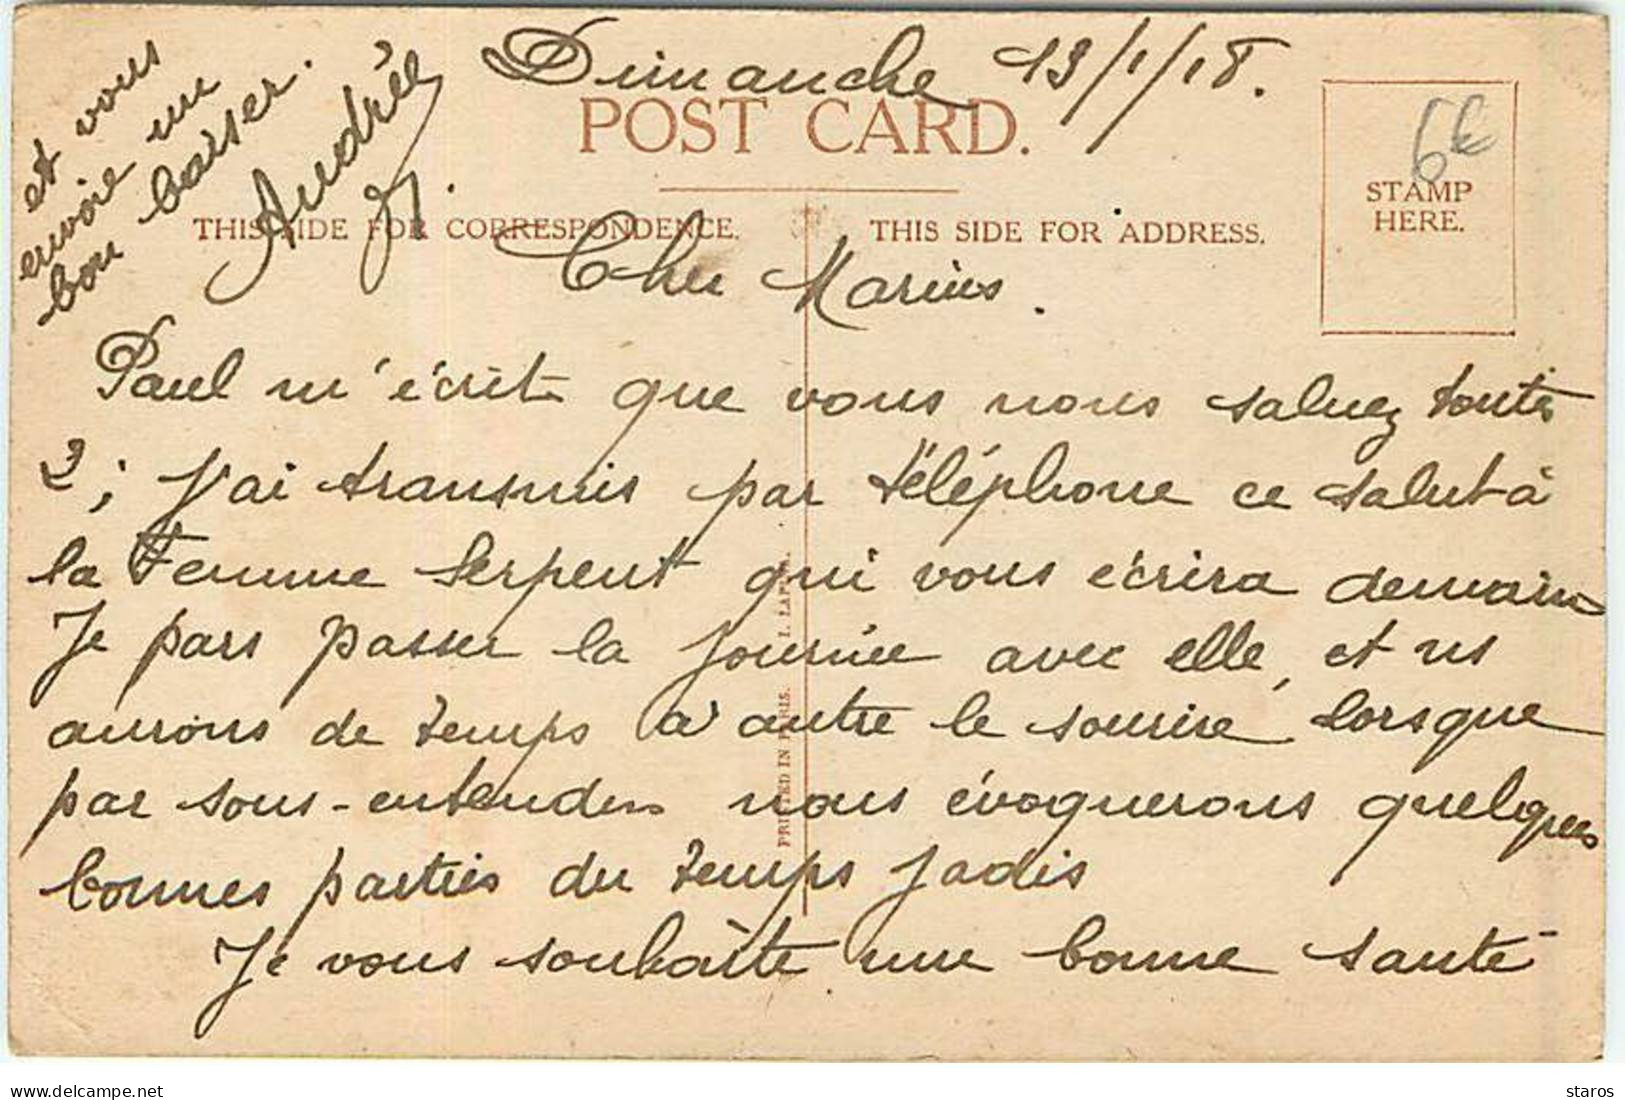 Dimanche 13/1/18.
POST CARD.
6€
STAMP
HERE.
THIS SIDE FOR CORRESPONDENCE.
THIS SIDE FOR ADDRESS.
Cher Marius.
Paul m'écrit que vous nous saluez toutes
2; J'ai transmis par téléphone ce salut à
la Femme Serpent qui vous écrira demain
Je pars passer la journée avec elle, et ns
aurons de temps à autre le sourire lorsque
par sous-entendus nous évoquerons quelques
bonnes parties du temps jadis
Je vous souhaite une bonne santé
et vous
envoie un
bon baiser.
Andrée
PRINTED IN PARIS.
staros
delcampe.net